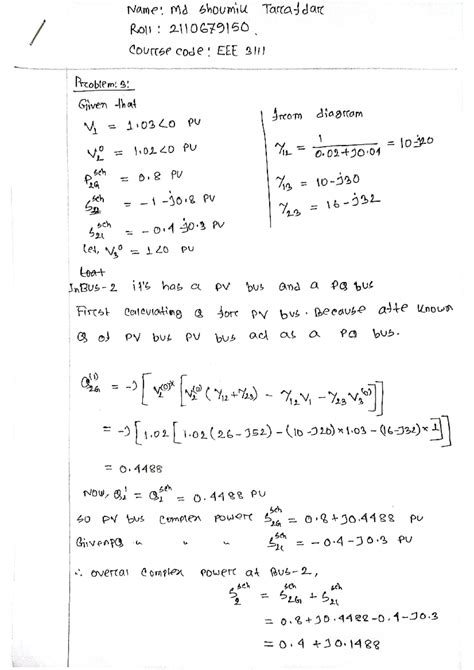 Name: Md Shoumik Tarrafdarr
Roll: 2110679150
Courrse code: EEE 3111
Prroblem: 3:
Given that
V₁ = 1.03<0 PU
V₂⁰ = 1.02<0 PU
P₂G^sch = 0.8 PU
= -1 -J0.8 PU
S₂L^sch = -0.4 J0.3 PU
let, V₃⁰ = 1<0 PU
frrom diagrram
Y₁₂ = 1/(0.02+J0.04) = 10-J20
Y₁₃ = 10-J30
Y₂₃ = 16-J32
In Bus-2 it's has a PV bus and a PQ bus
Firrst calculating Q forr PV bus. Because afte known
Q of PV bus PV bus act as a PQ bus.
Q₂G^(1) = -J[V₂^(0)*[V₂^(0)(Y₁₂+Y₂₃) - Y₁₂V₁ - Y₂₃V₃^(0)]]
= -J[1.02[1.02(26-J52)-(10-J20)×1.03-(16-J32)×1]]
= 0.4488
Now, Q₂¹ = Q₂^sch = 0.4488 PU
so PV bus complex powerr S₂G^sch = 0.8+J0.4488 PU
Given PQ " " " S₂L^sch = -0.4-J0.3 PU
∴ overral complex powerr at Bus-2,
S₂^sch = S₂G^sch + S₂L^sch
= 0.8+J0.4488-0.4-J0.3
= 0.4+J0.1488